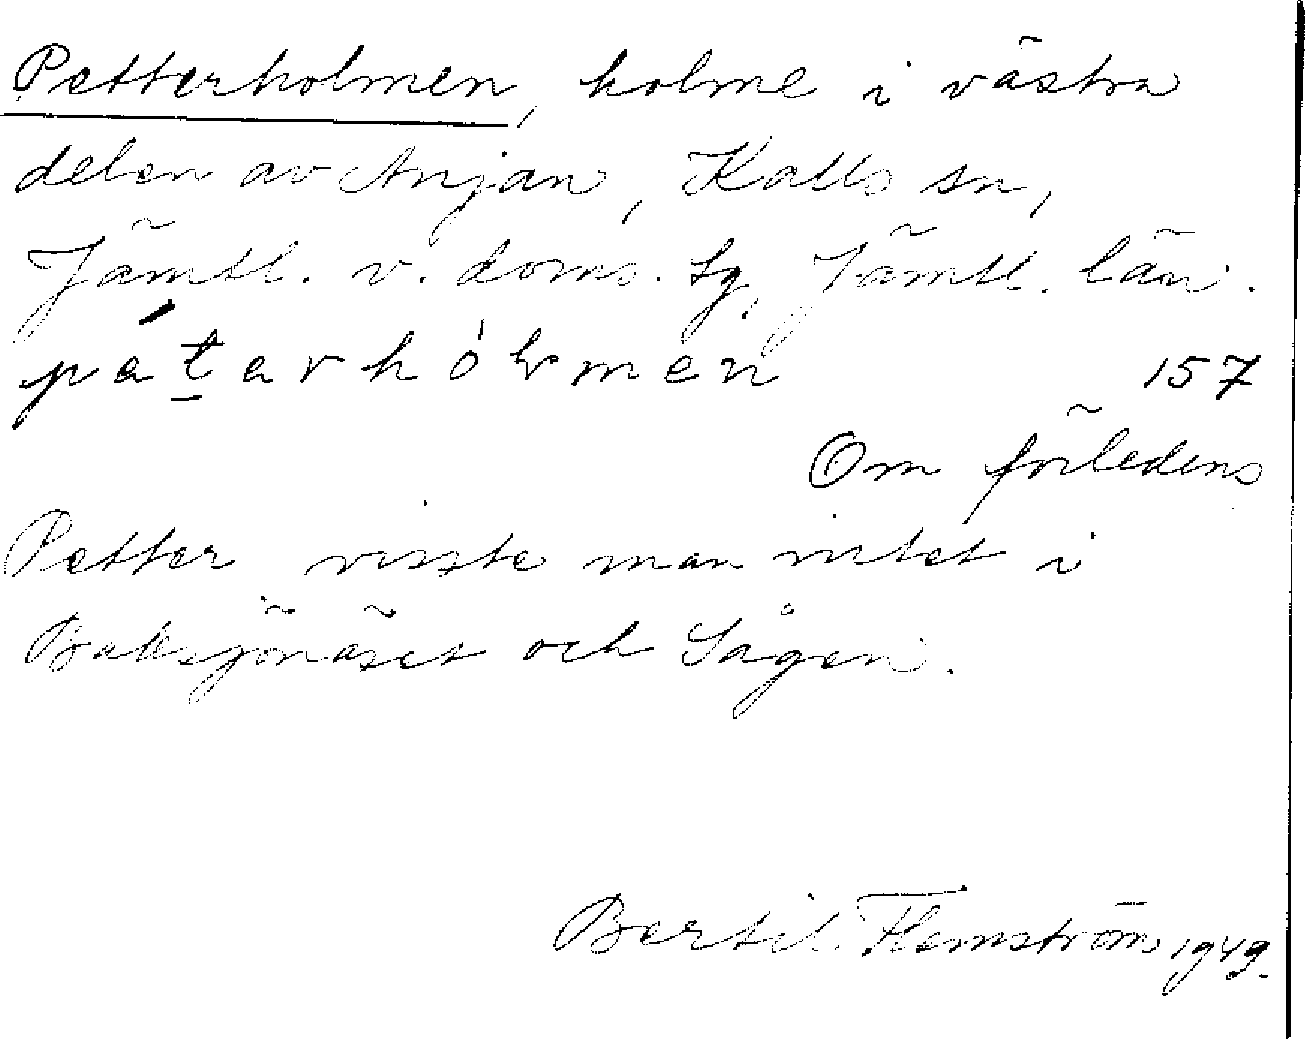 Petterholmen, holme i västra
delen av Anjan, Kalls sn,
Jämtl. v. doms. sg, Jämtl. län.
157
Om förledens
Petter visste man intet i
Baksjönäset och Sågen.
Bertil Flemström 1949.